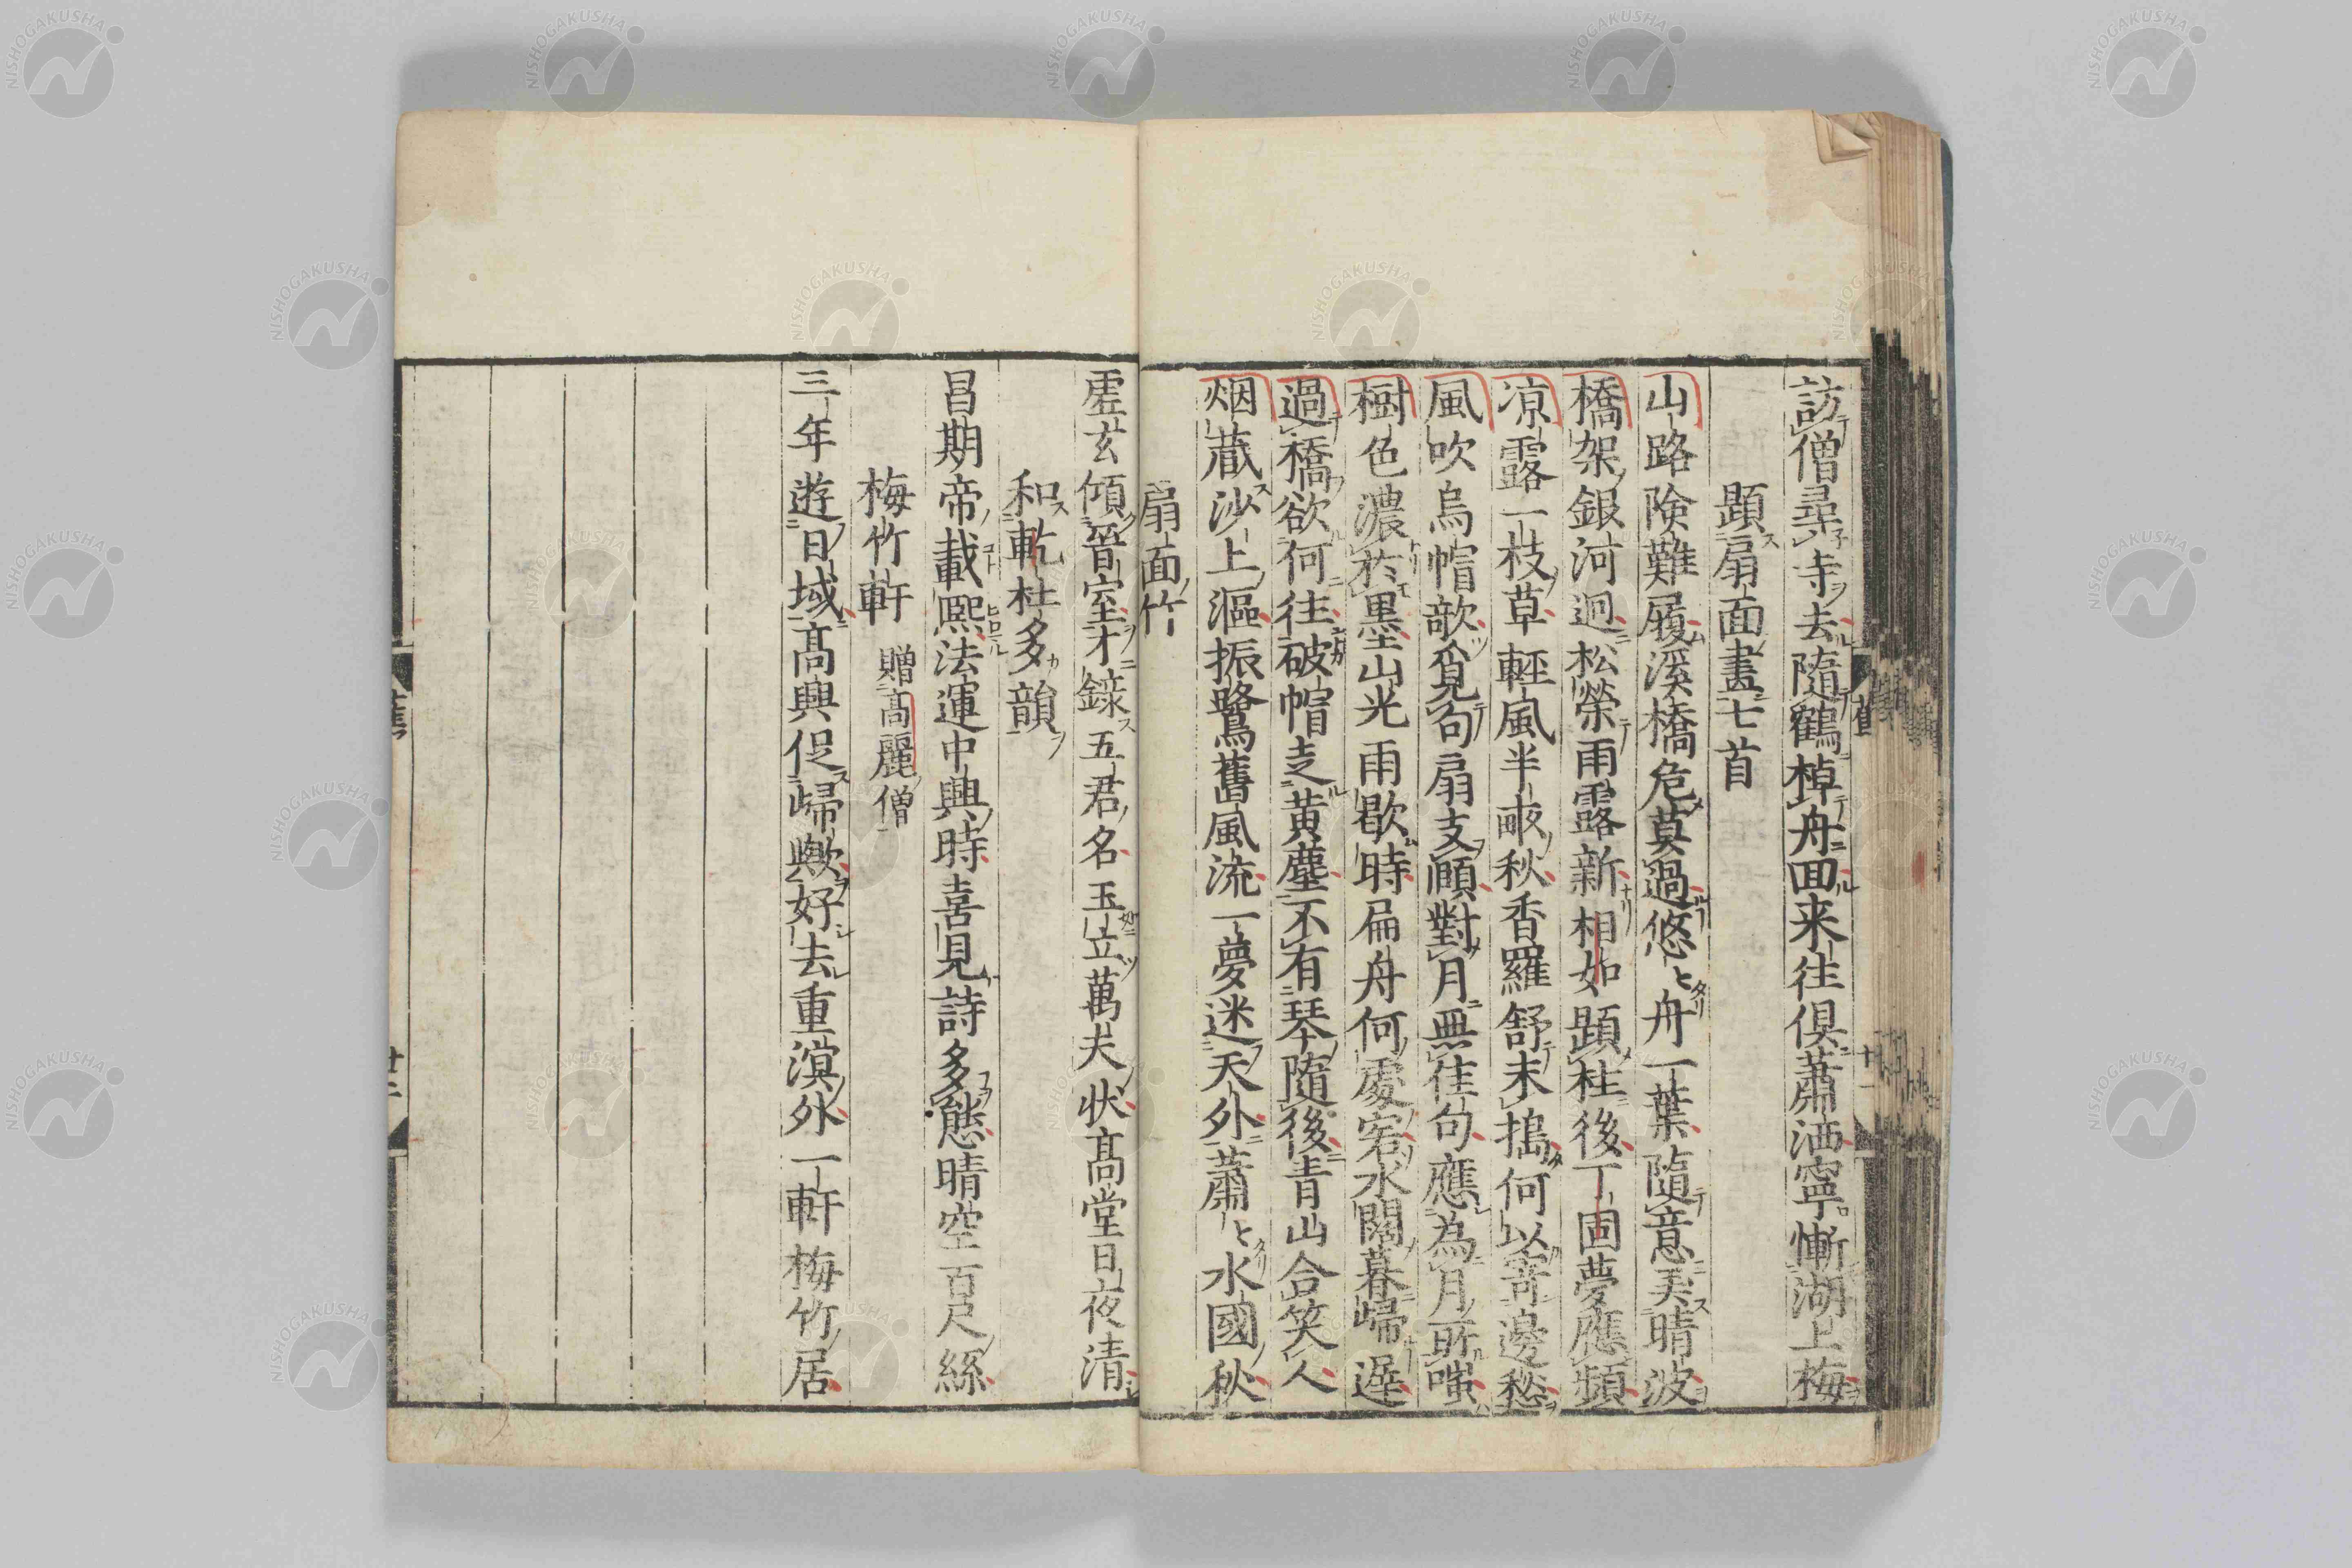 訪僧尋寺去隨鶴棹舟回来往俱蕭洒寧慚湖上梅
題扇面畫七首
山路険難履溪橋危莫過悠〻舟一葉隨意美晴波
橋架銀河迥松榮雨露新相如題柱後丁固夢應頻
凉露一枝草輕風半畝秋香羅舒未搗何以寄邊愁
風吹烏帽欹覓句扇支頤對月無佳句應為月所嗤
樹色濃於墨山光雨歇時扁舟何處宕水闊暮歸遲
過橋欲何往破帽走黄塵不有琴隨後青山合笑人
烟蔵沙上漚振鷺舊風流一夢迷天外蕭〻水國秋
扇面竹
虛玄傾晉室才錄五君名玉立萬夫状髙堂日夜清
和乾杜多韻
昌期帝載熙法運中興時喜見詩多態晴空百尺絲
梅竹軒 贈髙麗僧
三年遊日域髙興促歸歟好去重溟外一軒梅竹居
蕉
廿二